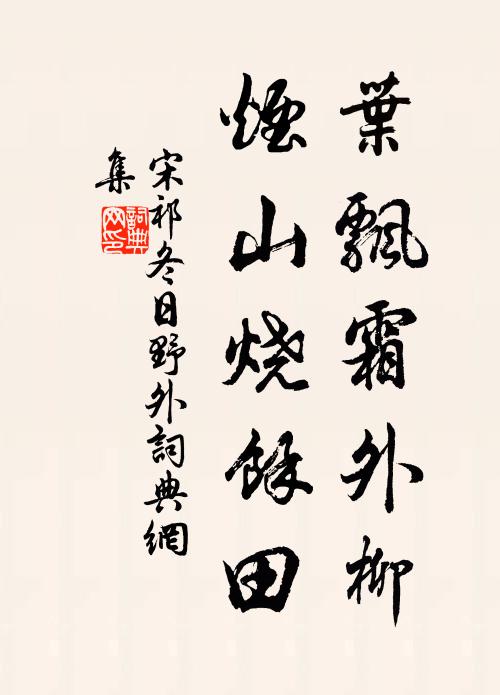 葉飄霜外柳
煙山燒餘田
宋祁冬日野外詞典網
集
詞典
网